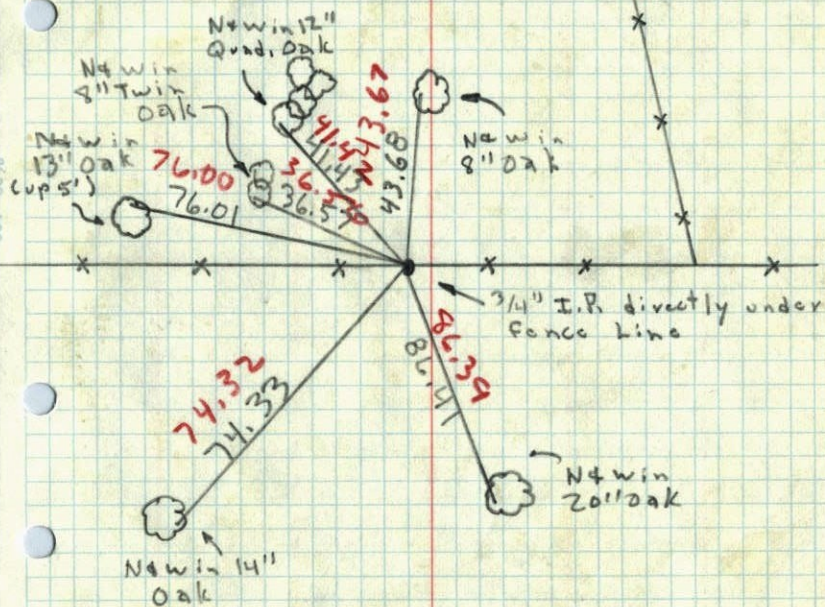 N&W in 12"
Quad. Oak
N&W in
8" Twin
Oak
N&W in
13" Oak
(up 5')
76.00
76.01
36.57
41.43
43.67
43.68
N&W in
8" Oak
3/4" I.P. directly under
fence Line
86.39
86.41
74.32
74.33
N&W in
20" Oak
N&W in 14"
Oak